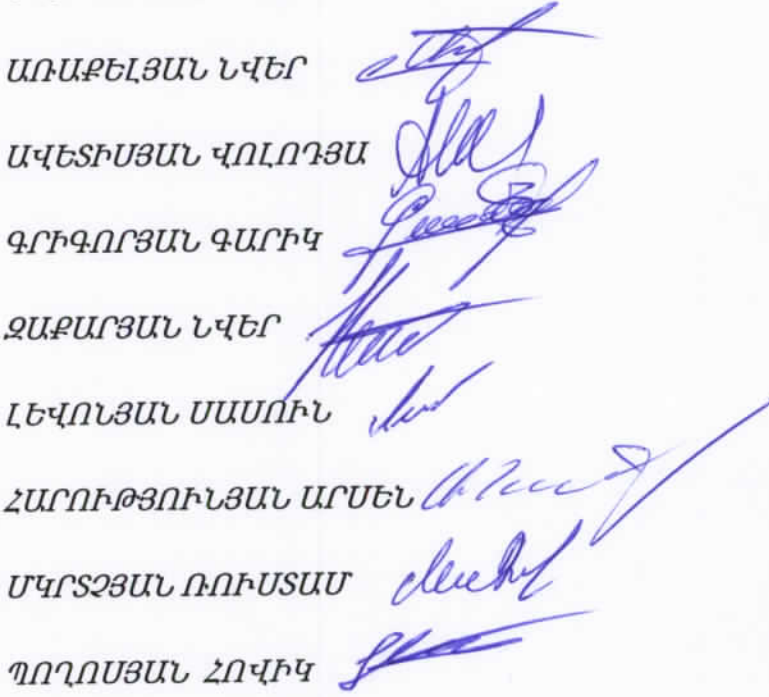 ԱՌԱՔԵԼՅԱՆ ՆՎԵՐ
ԱՎԵՏԻՍՅԱՆ ՎՈԼՈԴՅԱ
ԳՐԻԳՈՐՅԱՆ ԳԱՐԻԿ
ԶԱՔԱՐՅԱՆ ՆՎԵՐ
ԼԵՎՈՆՅԱՆ ՍԱՍՈՒՆ
ՀԱՐՈՒԹՅՈՒՆՅԱՆ ԱՐՍԵՆ
ՄԿՐՏՉՅԱՆ ՌՈՒՍՏԱՄ
ՊՈՂՈՍՅԱՆ ՀՈՎԻԿ